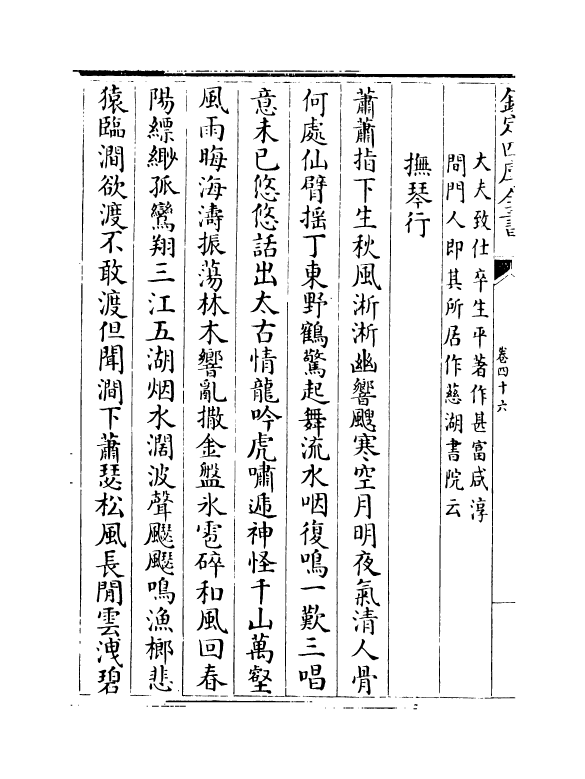 欽定四庫全書
卷四十六
大夫致仕卒生平著作甚富咸淳
間門人即其所居作慈湖書院云
撫琴行
蕭蕭指下生秋風淅淅幽響颼寒空月明夜氣清人骨
何處仙臂揺丁東野鶴驚起舞流水咽復鳴一歎三唱
意未已悠悠話出太古情龍吟虎嘯遁神怪千山萬壑
風雨晦海濤振蕩林木響亂撒金盤氷雹碎和風回春
陽縹緲孤鸞翔三江五湖烟水濶波聲颼颼鳴漁榔悲
猿臨澗欲渡不敢渡但聞澗下蕭瑟松風長閒雲洩碧